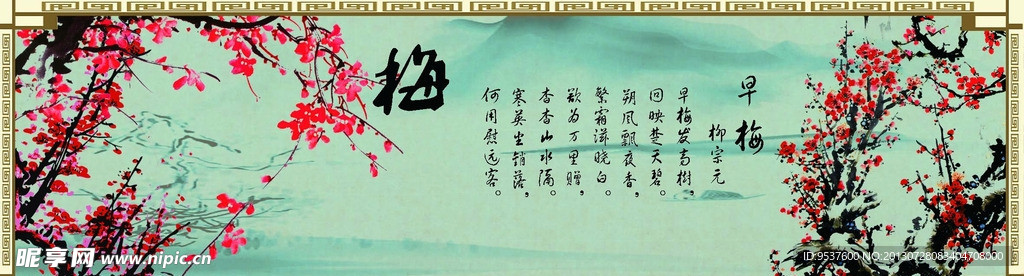 早梅
柳宗元
早梅发高树，
回映楚天碧。
朔风飘夜香，
繁霜滋晓白。
欲为万里赠，
杳杳山水隔。
寒英坐销落，
何用慰远客。
梅
昵享网 www.nipic.cn
ID:9537600 NO:20130728083404708000